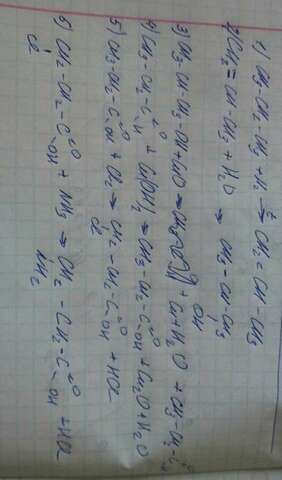 1) CH3-CH2-CH3 + H2 →t CH2=CH-CH3
2) CH2=CH-CH3 + H2O → CH3-CH(OH)-CH3
3) CH3-CH-CH3-OH + CuO → + Cu + H2O + CH3-CH2-C
4) CH3-CH2-C(=O)-H + Cu(OH)2 → CH3-CH2-C(=O)-OH + Cu2O + H2O
5) CH3-CH2-C(=O)-OH + Cl2 → CH2(Cl)-CH2-C(=O)-OH + HCl
6) CH2(Cl)-CH2-C(=O)-OH + NH3 → CH2(NH2)-CH2-C(=O)-OH + HCl